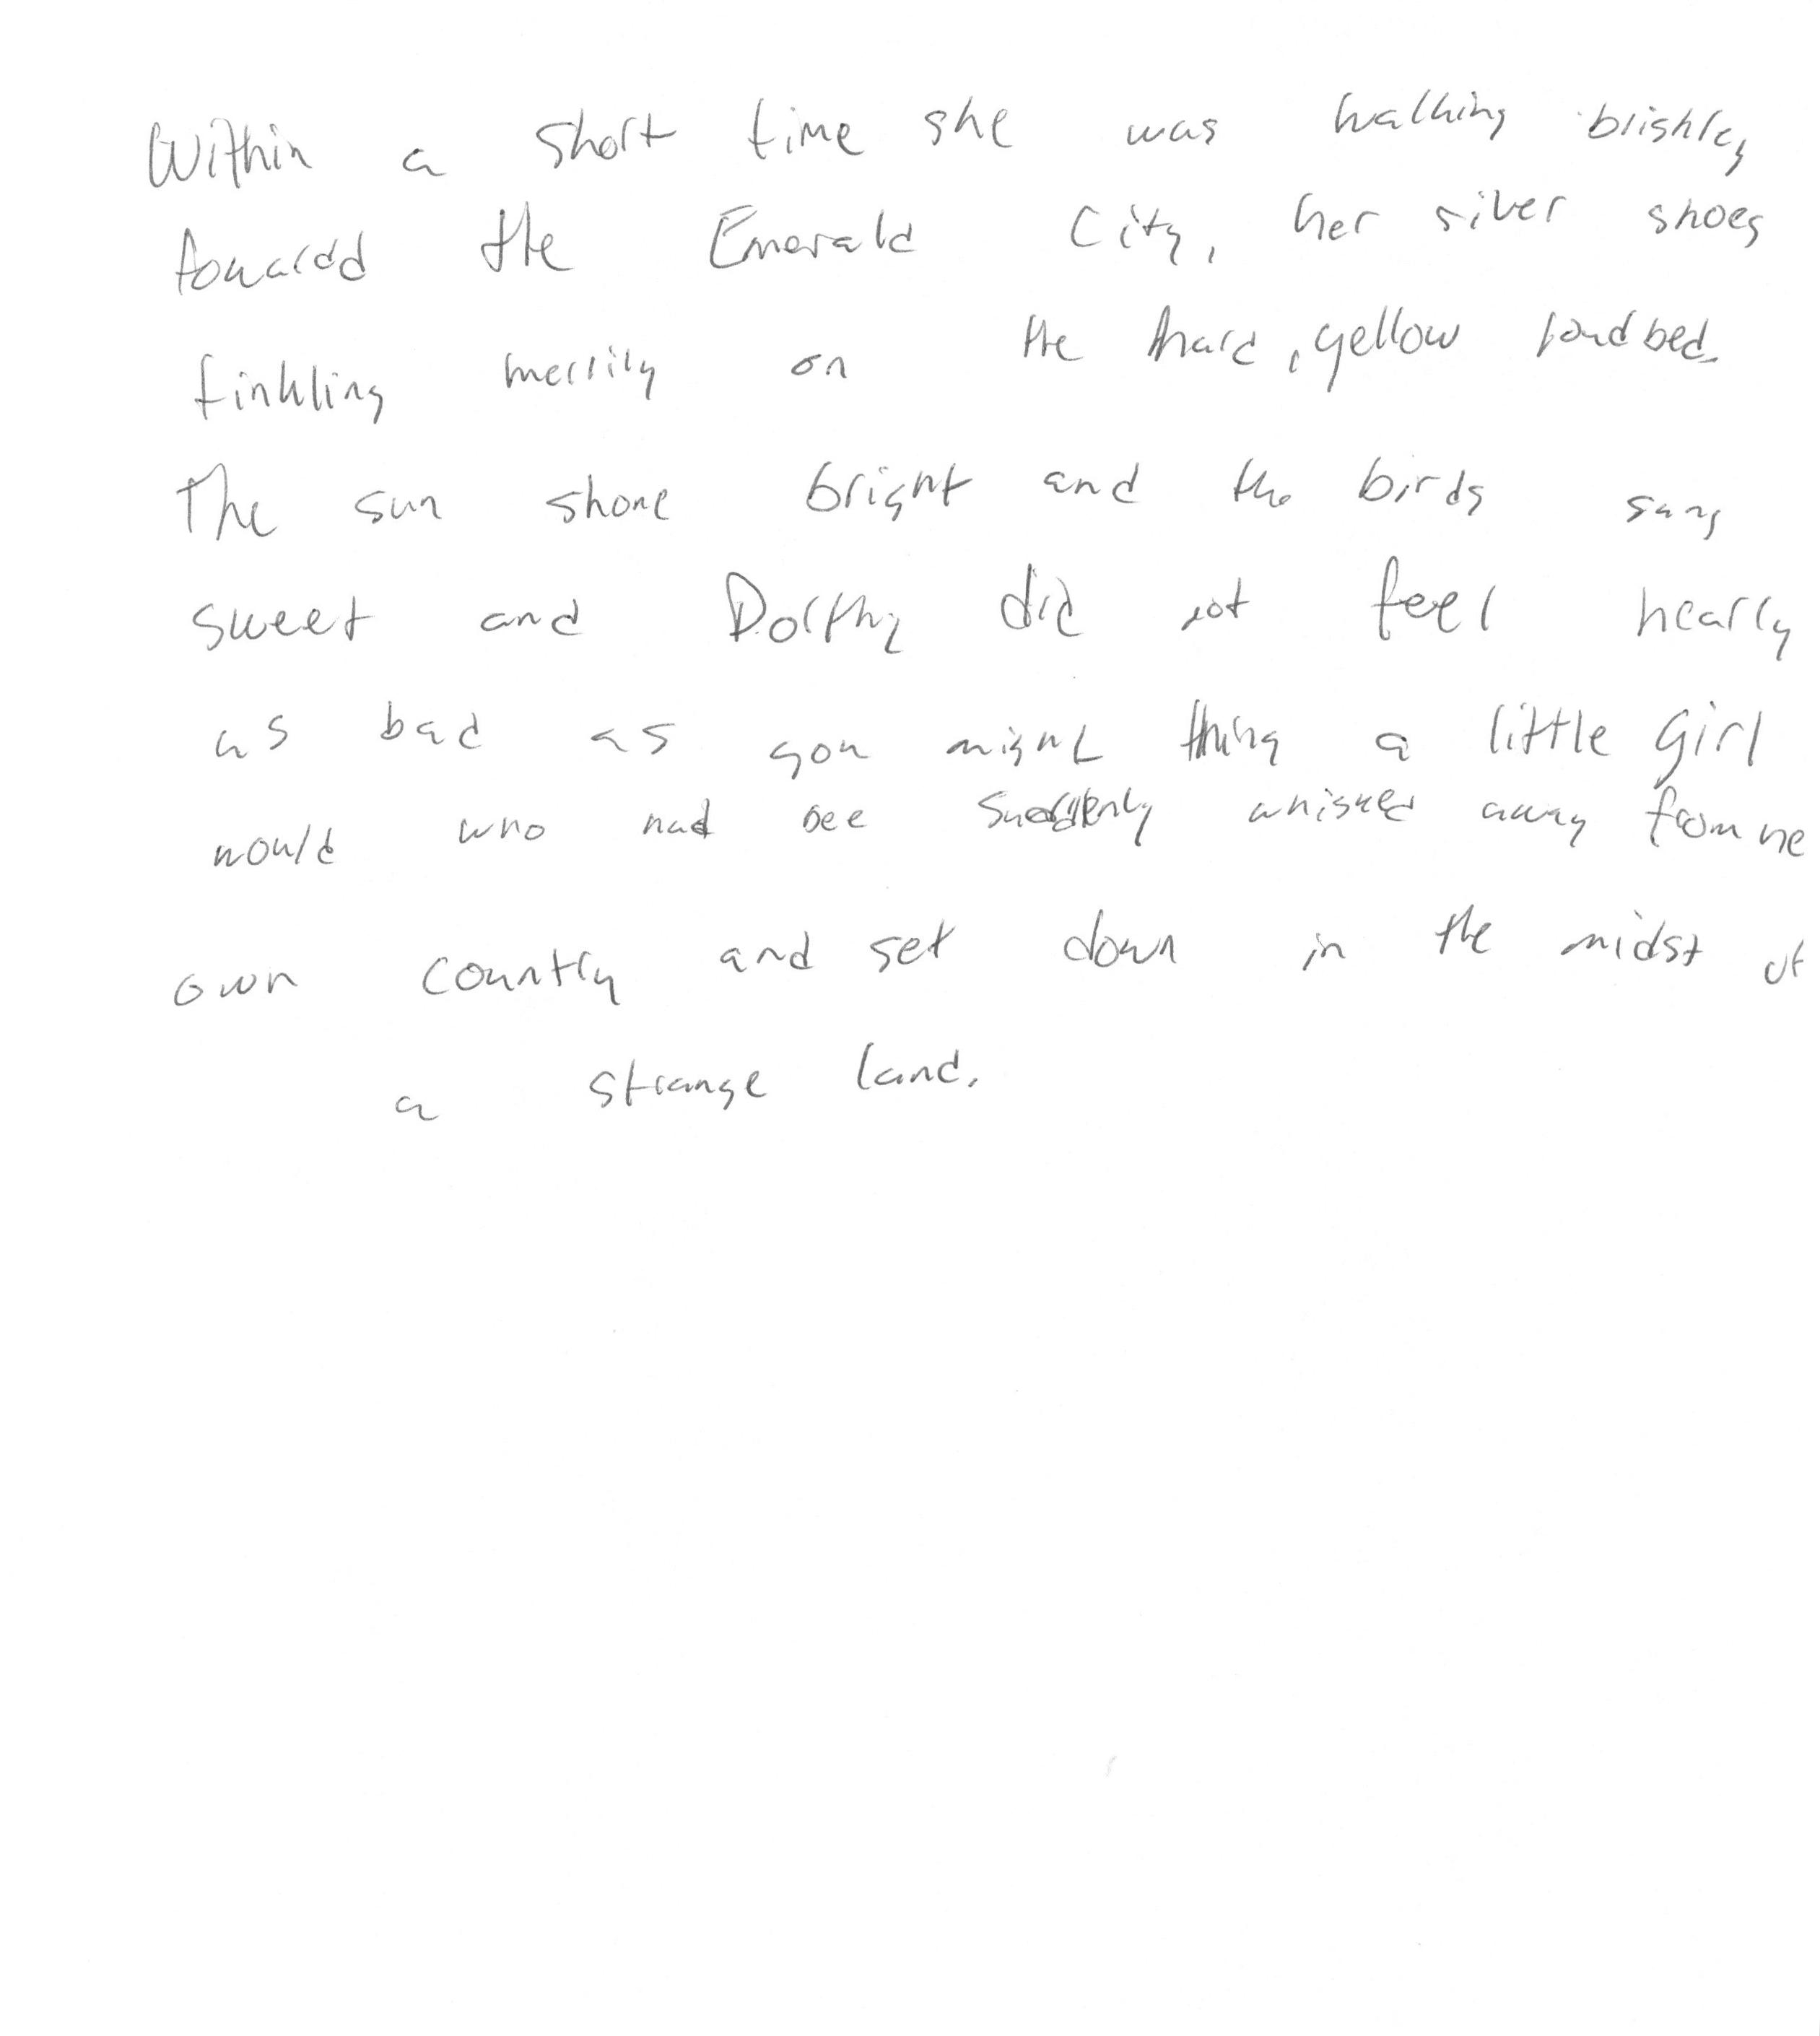 Within a short time she was walking briskley
towardd the Emerald City, her silver shoes
tinkling merrily on the hard, yellow roadbed.
The sun shone bright and the birds sang
sweet and Dorthy did not feel nearly
as bad as you might thing a little girl
would who had bee suddenly whisked away from he
own country and set down in the midst of
a strange land.